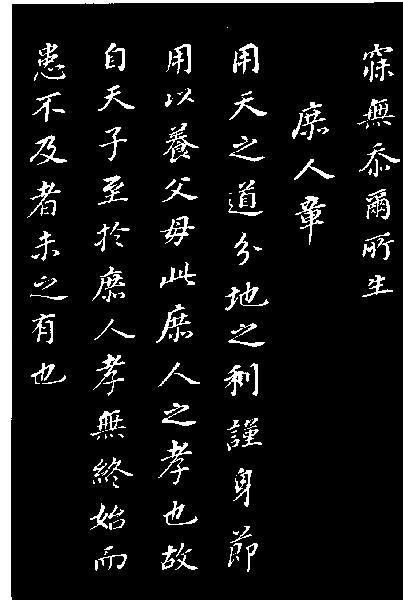 寐無忝爾所生
庶人章
用天之道分地之利謹身節
用以養父母此庶人之孝也故
自天子至於庶人孝無終始而
患不及者未之有也